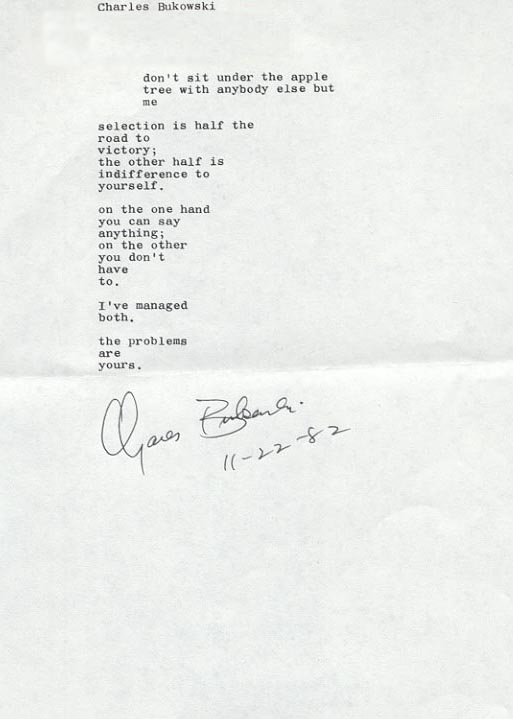 Charles Bukowski
don't sit under the apple
tree with anybody else but
me
selection is half the
road to
victory;
the other half is
indifference to
yourself.
on the one hand
you can say
anything;
on the other
you don't
have
to.
I've managed
both.
the problems
are
yours.
Charles Bukowski.
11-22-82